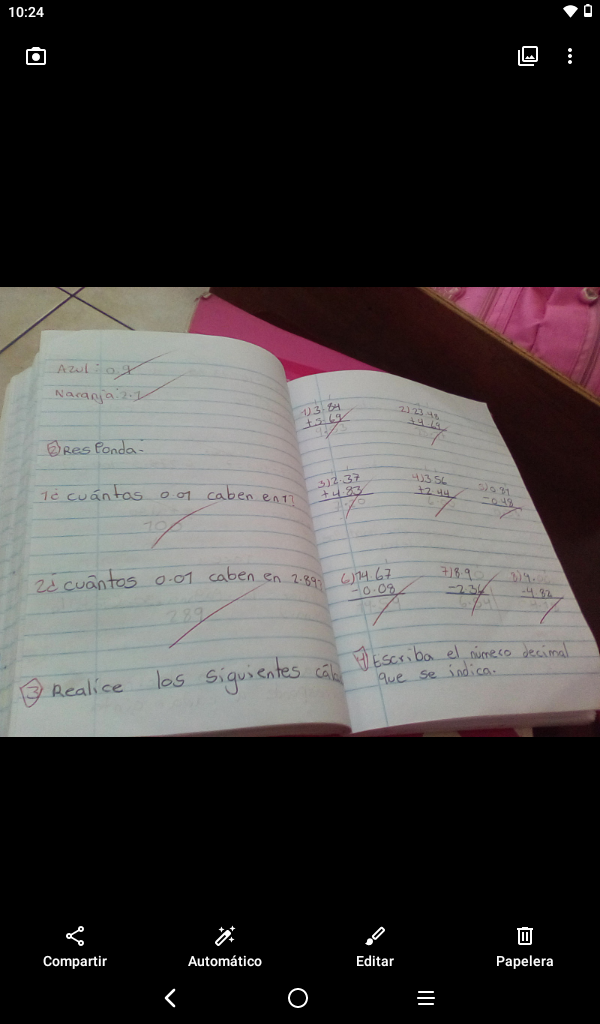 10:24
Azul: 0.9
Naranja: 2.1
2 Responda-
1¿ cuántos 0.01 caben en 1?
100
2¿ cuántos 0.01 caben en 2.89?
289
3 Realice los siguientes cál
1) 3.84
+5.69
2) 23.48
+4.69
3) 2.37
+4.83
4) 3.56
+2.44
5) 0.81
-0.48
6) 14.67
-0.08
7) 8.9
-2.36
8) 9.
-4.82
4 Escriba el número decimal
que se indica.
Compartir
Automático
Editar
Papelera